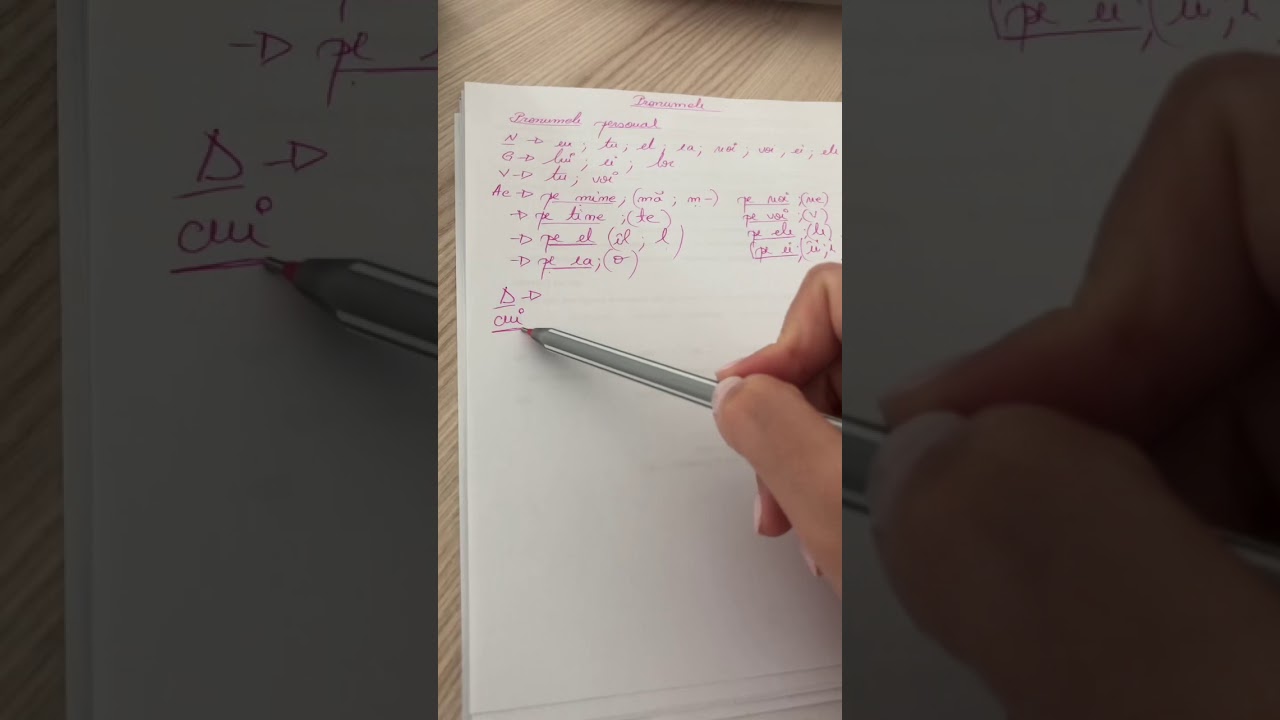 Pronumele
Pronumele personal
N → eu ; tu ; el ; ea ; noi ; voi , ei ; ele
G → lui ; ei ; lor
V → tu ; voi
Ac → pe mine, (mă ; m-) pe noi ; (ne)
→ pe tine ; (te) pe voi ; (v)
→ pe el (îl ; l) pe ele ; (le)
→ pe ea ; (o) pe ei ; (îi ; i
D →
cui